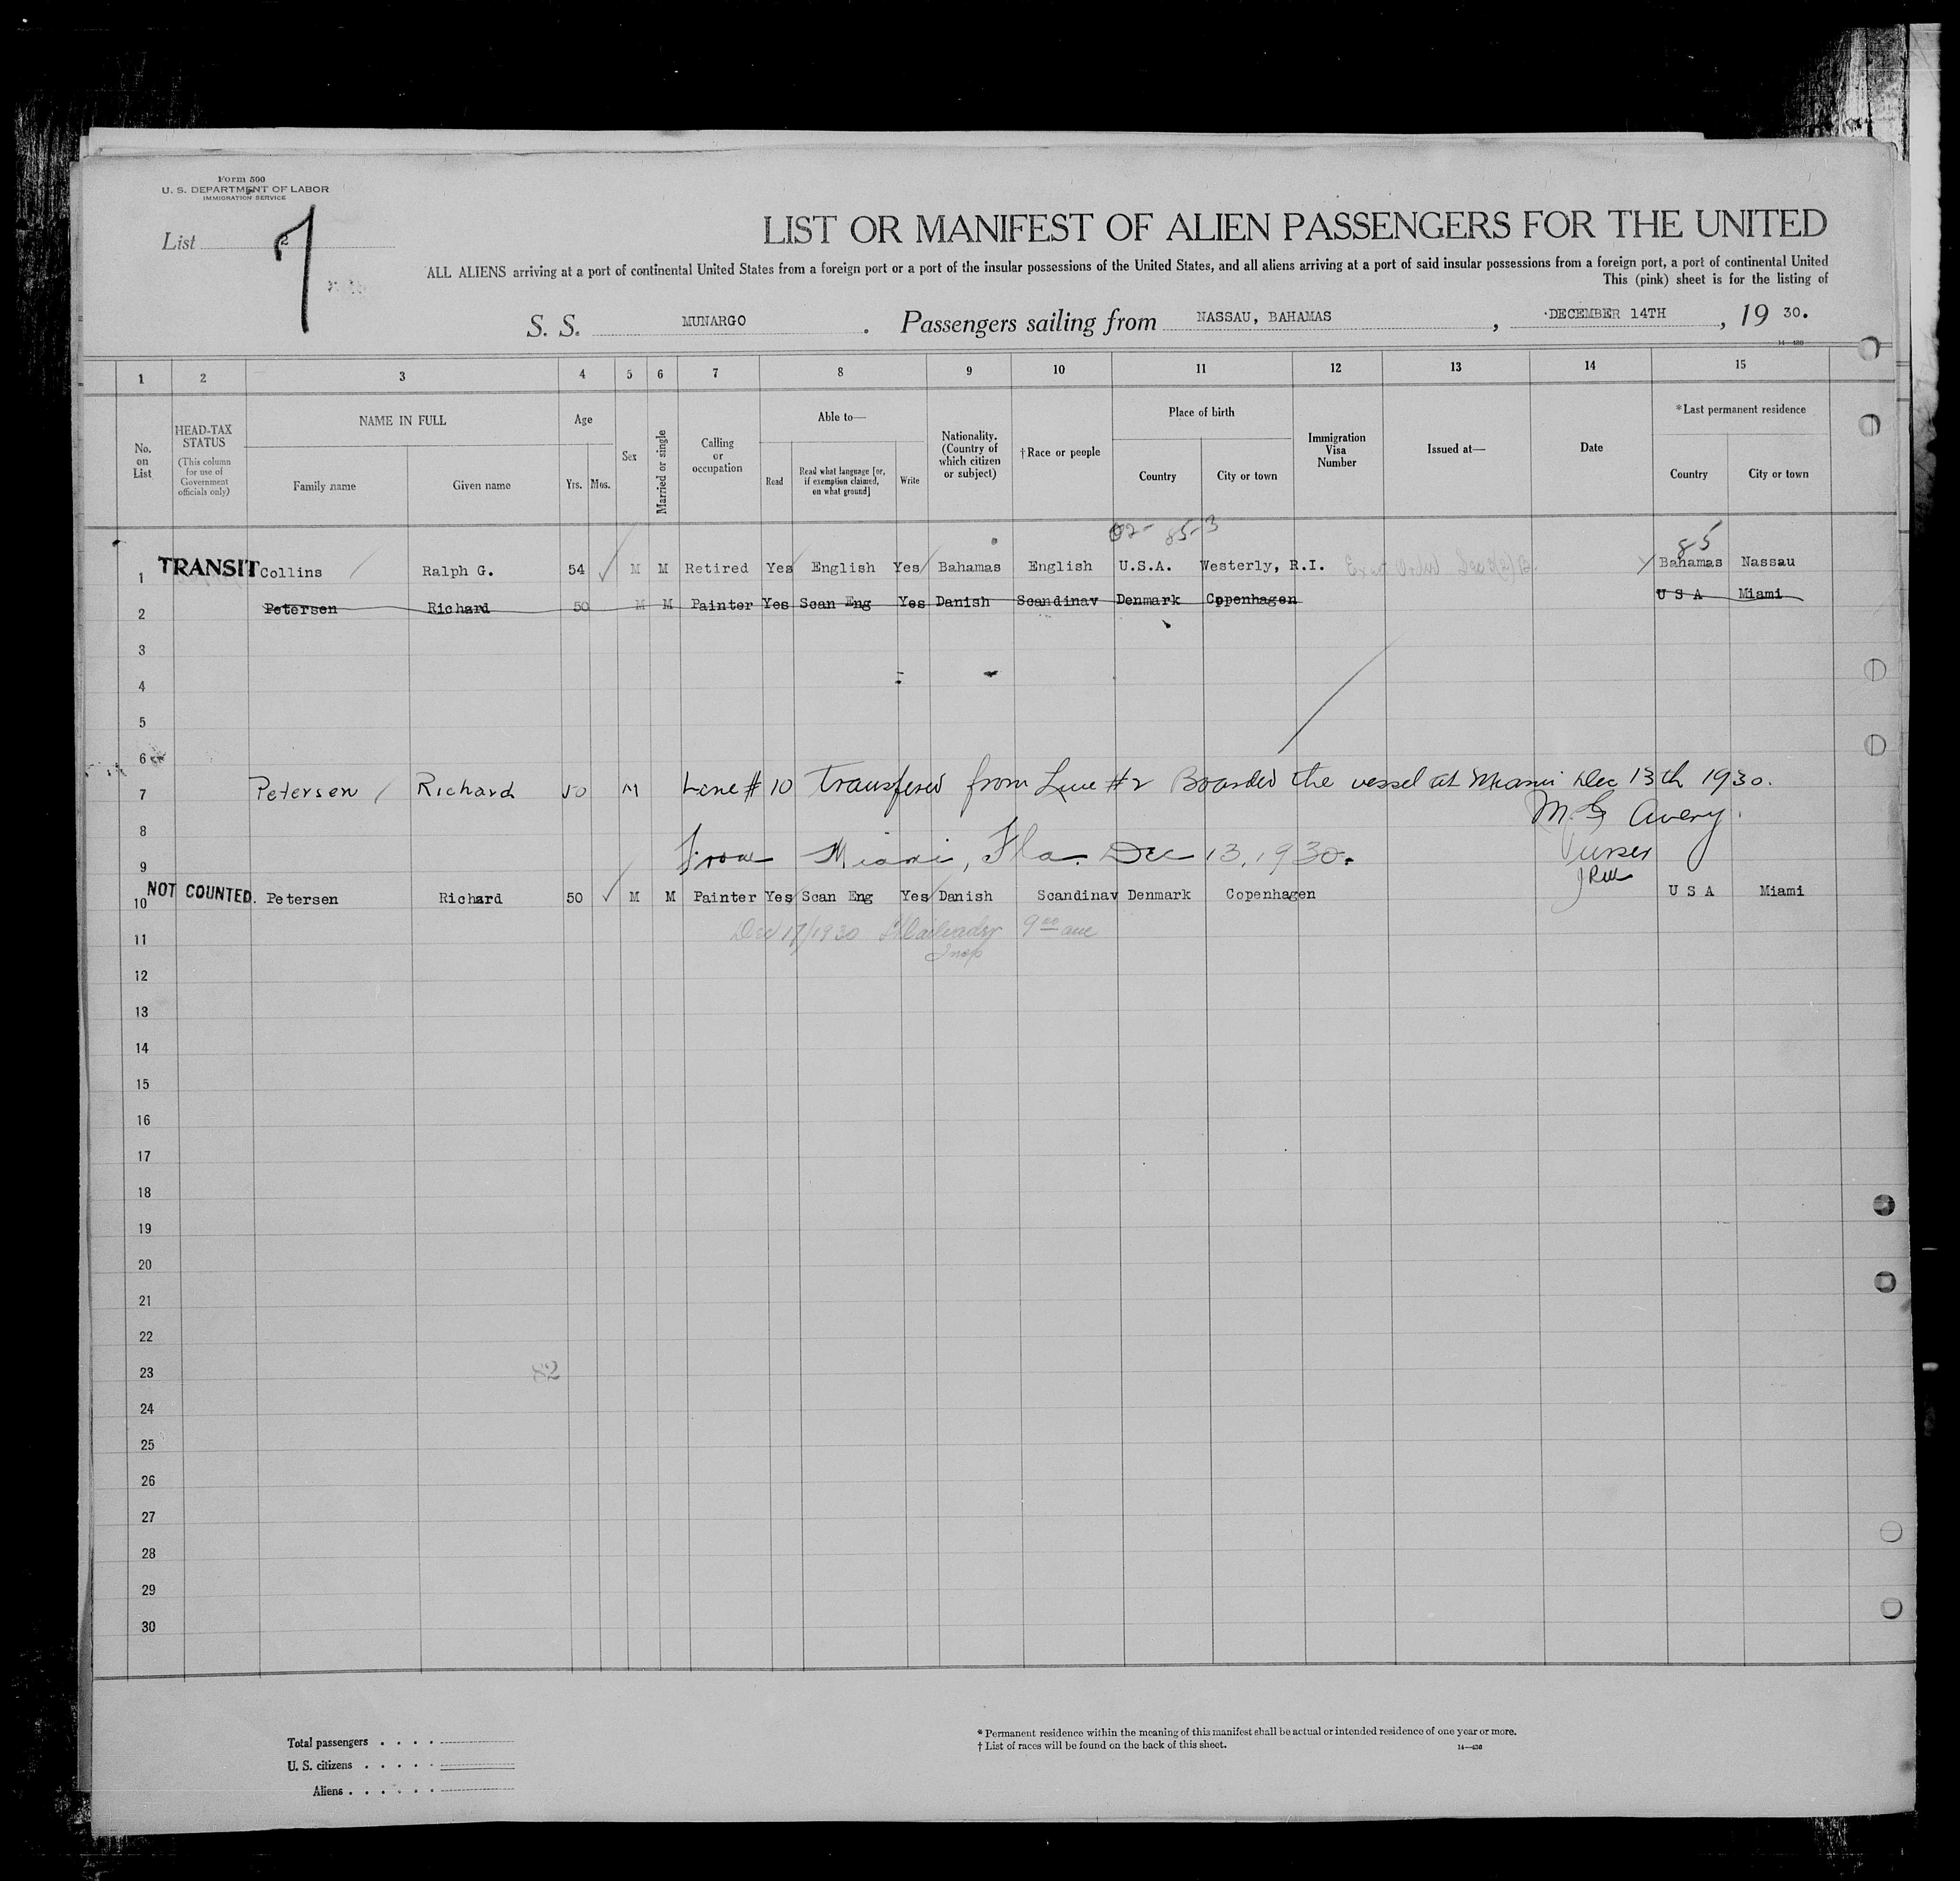 Form 500
U. S. DEPARTMENT OF LABOR
IMMIGRATION SERVICE
List 2
7
LIST OR MANIFEST OF ALIEN PASSENGERS FOR THE UNITED
ALL ALIENS arriving at a port of continental United States from a foreign port or a port of the insular possessions of the United States, and all aliens arriving at a port of said insular possessions from a foreign port, a port of continental United
This (pink) sheet is for the listing of
S. S. MUNARGO. Passengers sailing from NASSAU, BAHAMAS, DECEMBER 14TH, 19 30.
14—430
1 2 3 4 5 6 7 8 9 10 11 12 13 14 15
No. on List
HEAD-TAX STATUS (This column for use of Government officials only)
NAME IN FULL
Family name Given name
Age
Yrs. Mos.
Sex
Married or single
Calling or occupation
Able to—
Read
Read what language [or, if exemption claimed, on what ground]
Write
Nationality. (Country of which citizen or subject)
†Race or people
Place of birth
Country City or town
Immigration Visa Number
Issued at—
Date
*Last permanent residence
Country City or town
02- 85-3
85
1 TRANSIT Collins Ralph G. 54 M M Retired Yes English Yes Bahamas English U.S.A. Westerly, R.I. Bahamas Nassau
2 Petersen Richard 50 M M Painter Yes Scan Eng Yes Danish Scandinav Denmark Copenhagen U S A Miami
3
4
5
6
7 Petersen Richard 50 M Line # 10 transfered from Line #2 Boarded the vessel at Miami Dec 13th 1930.
M. G Avery.
8
Purser
From Miami, Fla. Dec 13, 1930.
9
10 NOT COUNTED. Petersen Richard 50 M M Painter Yes Scan Eng Yes Danish Scandinav Denmark Copenhagen U S A Miami
11 Dec 17/1930 9 00
Insp
12
13
14
15
16
17
18
19
20
21
22
23 82
24
25
26
27
28
29
30
Total passengers . . . .
U. S. citizens . . . . .
Aliens . . . . . .
* Permanent residence within the meaning of this manifest shall be actual or intended residence of one year or more.
† List of races will be found on the back of this sheet.
14—430